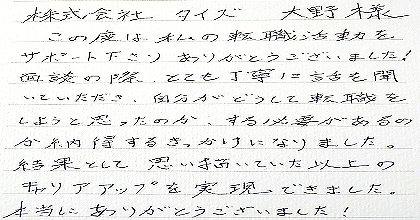 株式会社 タイズ 大野様
この度は私の転職活動を
サポート下さりありがとうございました!
面談の際、とても丁寧に話を聞
いていただき、自分がどうして転職を
しようと思ったのか、する必要があるの
か納得するきっかけになりました。
結果として思い描いていた以上の
キャリアアップを実現できました。
本当にありがとうございました!